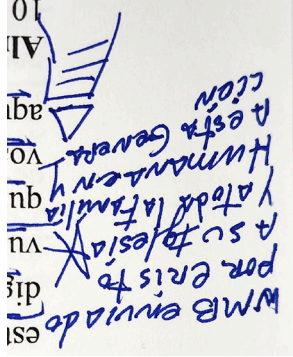 WMB enviado
por cristo
A su Iglesia
Y a toda la familia
Humana en
A esta Genera
cion
est
dig
vu
qu
vos
aqu
10